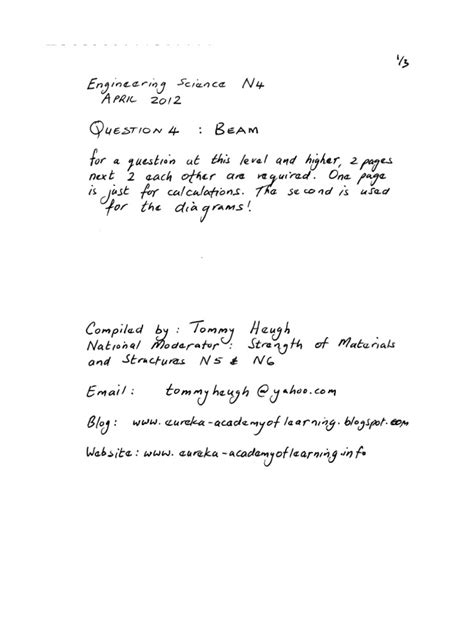 1/3
Engineering Science N4
APRIL 2012
QUESTION 4 : BEAM
for a question at this level and higher, 2 pages
next 2 each other are required. One page
is just for calculations. The second is used
for the diagrams!
Compiled by : Tommy Heugh
National Moderator : Strength of Materials
and Structures N5 & N6
Email : tommyheugh@yahoo.com
Blog : www.eureka-academyoflearning.blogspot.com
Website : www.eureka-academyoflearning.info